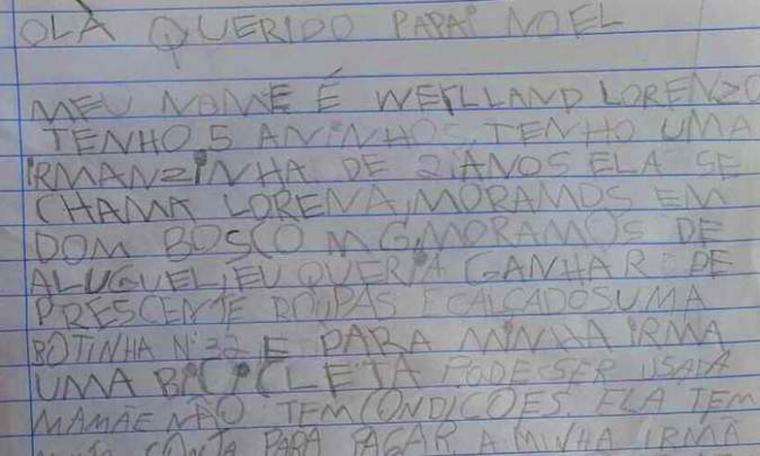 OLÀ QUERIDO PAPAI NOEL
MEU NOME É WERLLAND LORENZO
TENHO 5 ANINHOS, TENHO UMA
IRMANZINHA DE 2 ANOS ELA SE
CHAMA LORENA, MORAMOS EM
DOM BOSCO MG, MORAMOS DE
ALUGUEL, EU QUERIA GANHAR DE
PRESCENTE ROUPAS E CALÇADOS UMA
BOTINHA Nº 32 E PARA MINHA IRMA
UMA BICICLETA PODE SER USADA
MAMÃE NÃO TEM CONDICOES. ELA TEM
CONTA PARA PAGAR A MINHA IRMÃ